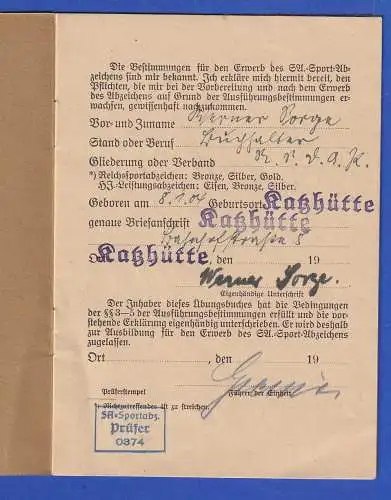 Die Bestimmungen für den Erwerb des SA.-Sport-Ab-
zeichens sind mir bekannt. Ich erkläre mich hiermit bereit, den
Pflichten, die mir bei der Vorbereitung und nach dem Erwerb
des Abzeichens auf Grund der Ausführungsbestimmungen er-
wachsen, gewissenhaft nachzukommen.
Vor- und Zuname Werner Sorge
Stand oder Beruf Buchhalter
Gliederung oder Verband
*) Reichssportabzeichen: Bronze, Silber, Gold.
HJ-Leistungsabzeichen: Eisen, Bronze, Silber.
Geboren am 8.1.04 Geburtsort Katzhütte
genaue Briefanschrift Katzhütte
Bahnhofstraße 8
Ort Katzhütte, den 19
Werner Sorge.
Eigenhändige Unterschrift
Der Inhaber dieses Übungsbuches hat die Bedingungen
der §§ 3—5 der Ausführungsbestimmungen erfüllt und die vor-
stehende Erklärung eigenhändig unterschrieben. Er wird deshalb
zur Ausbildung für den Erwerb des SA.-Sport-Abzeichens
zugelassen.
Ort , den 19
Prüferstempel Führer der Einheit
*) Nichtzutreffendes ist zu streichen.
SA-Sportabz.
Prüfer
0374